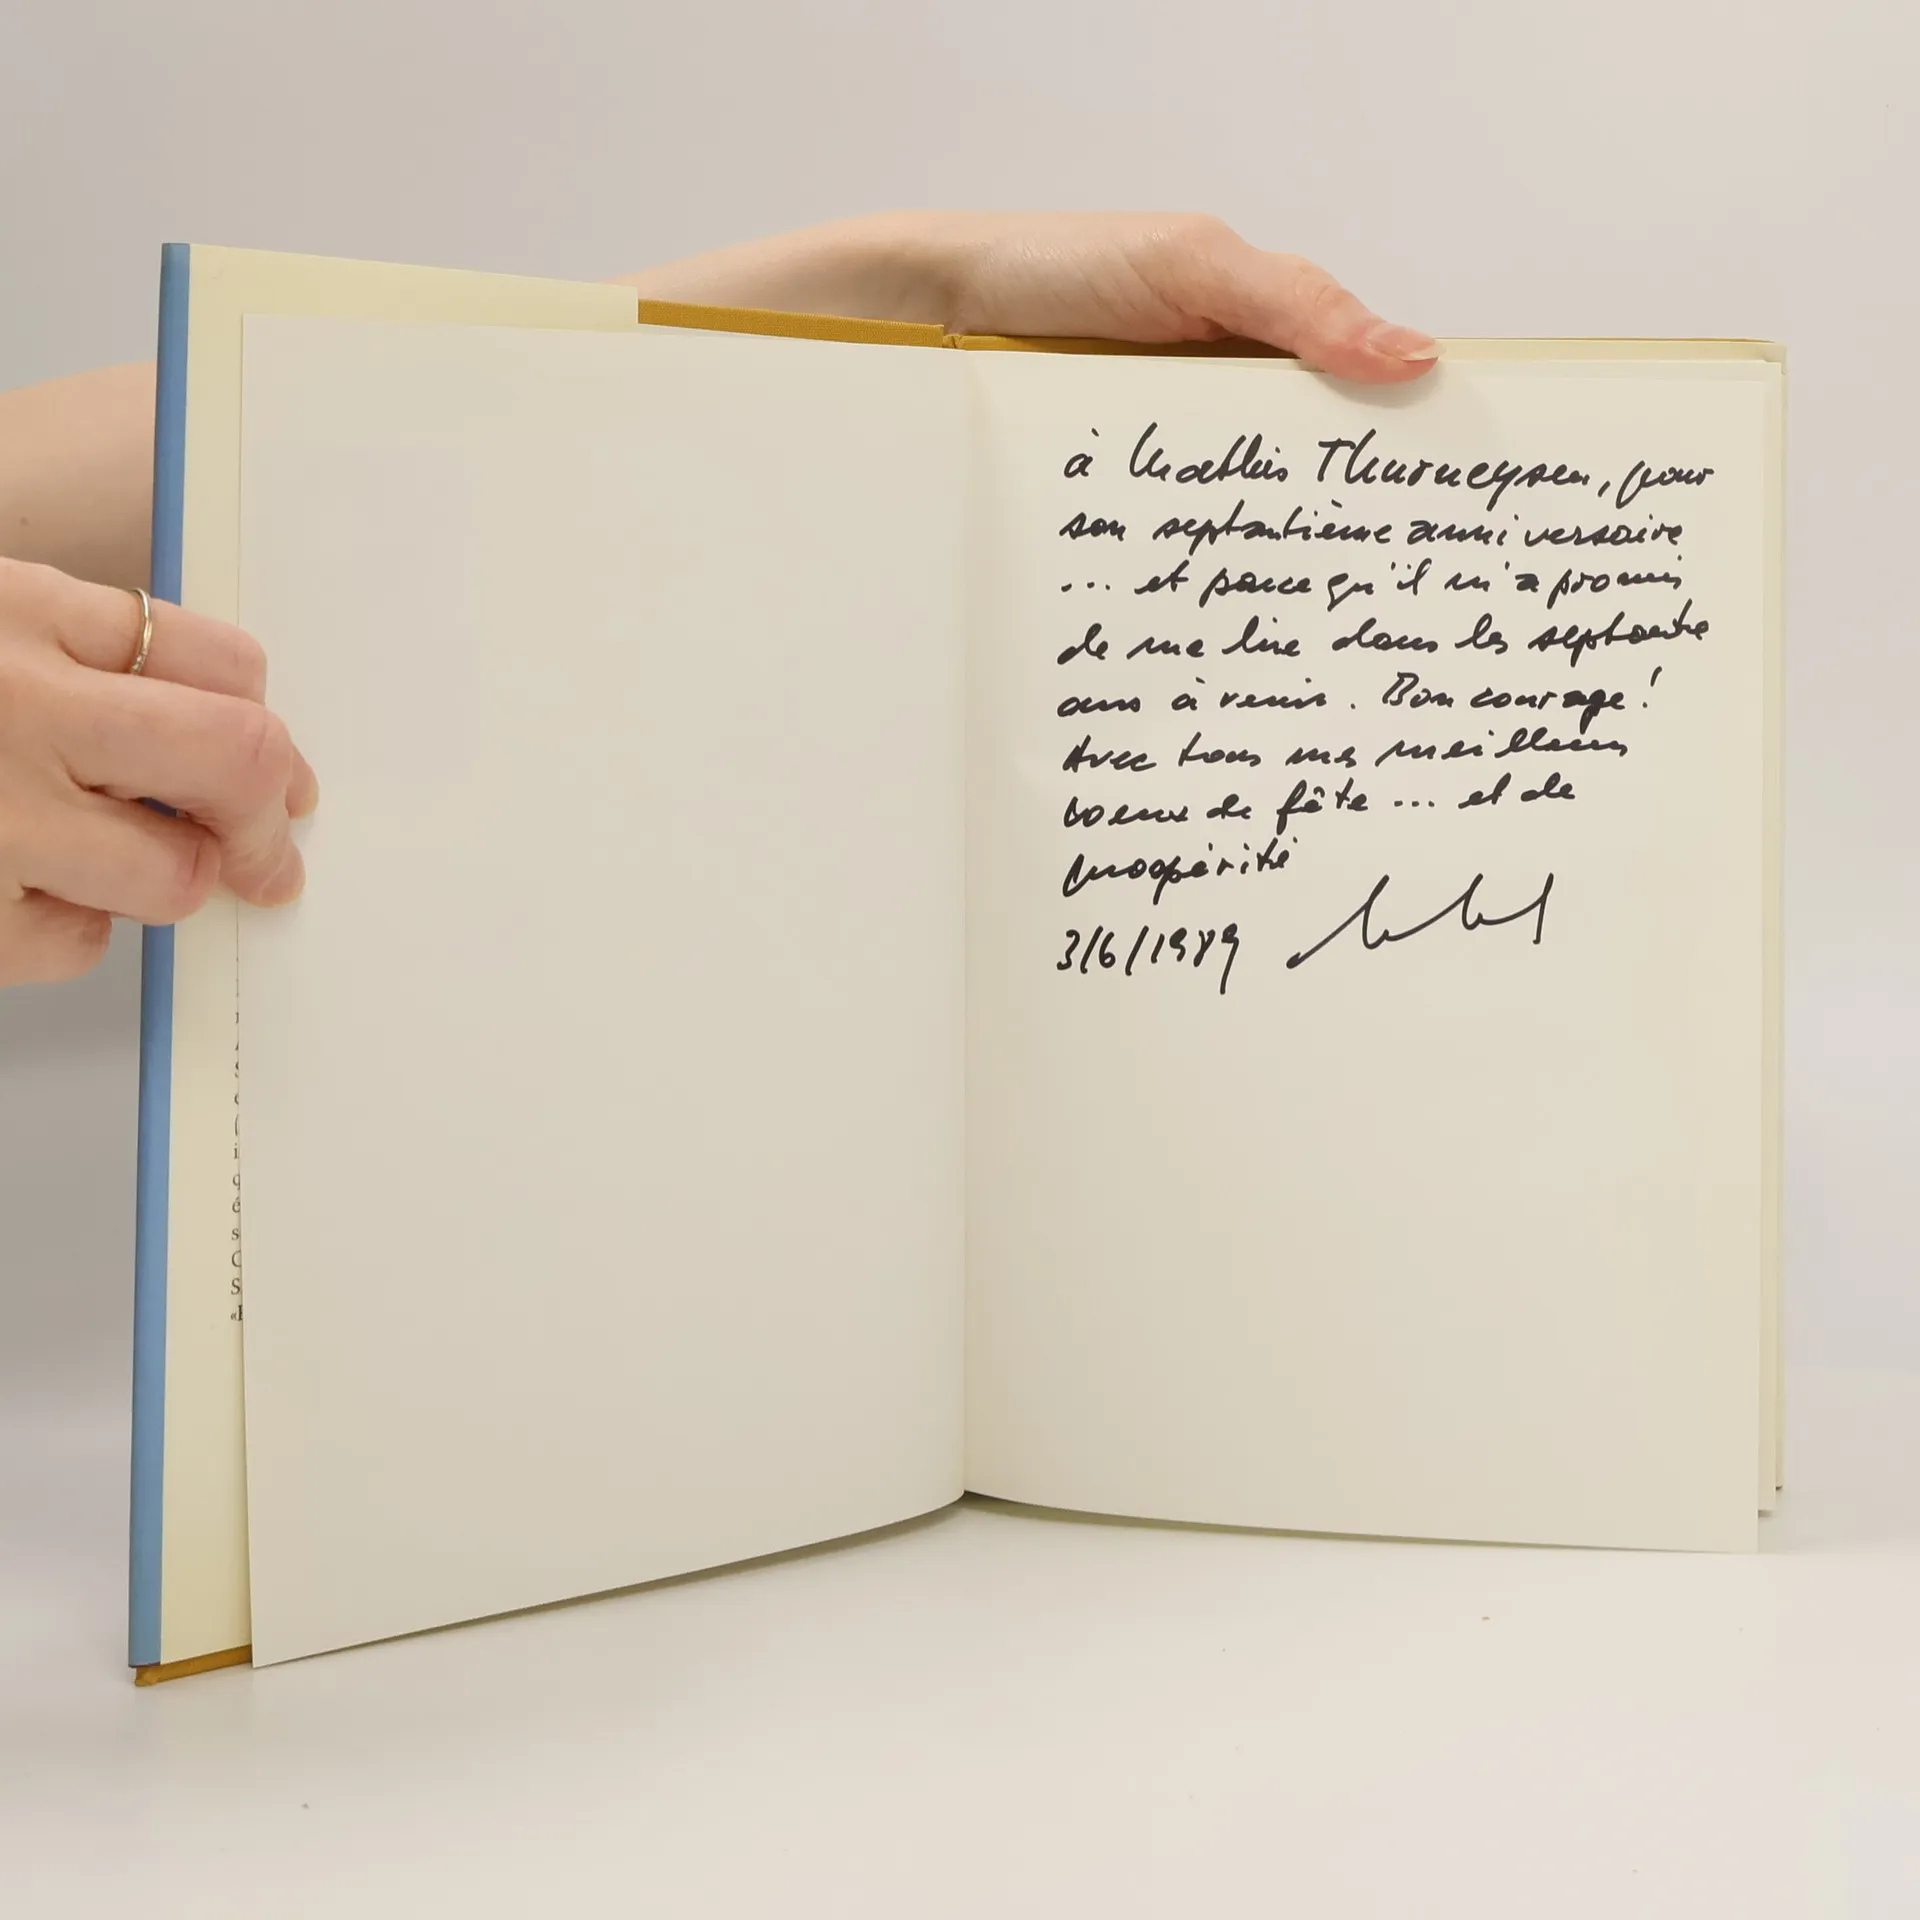 à Mathis Thurneysen, pour
son septantième anniversaire
... et parce qu'il m'a promis
de me lire dans les septante
ans à venir. Bon courage!
Avec tous mes meilleurs
voeux de fête ... et de
prospérité
3/6/1989
i
q
ê
s
C
S